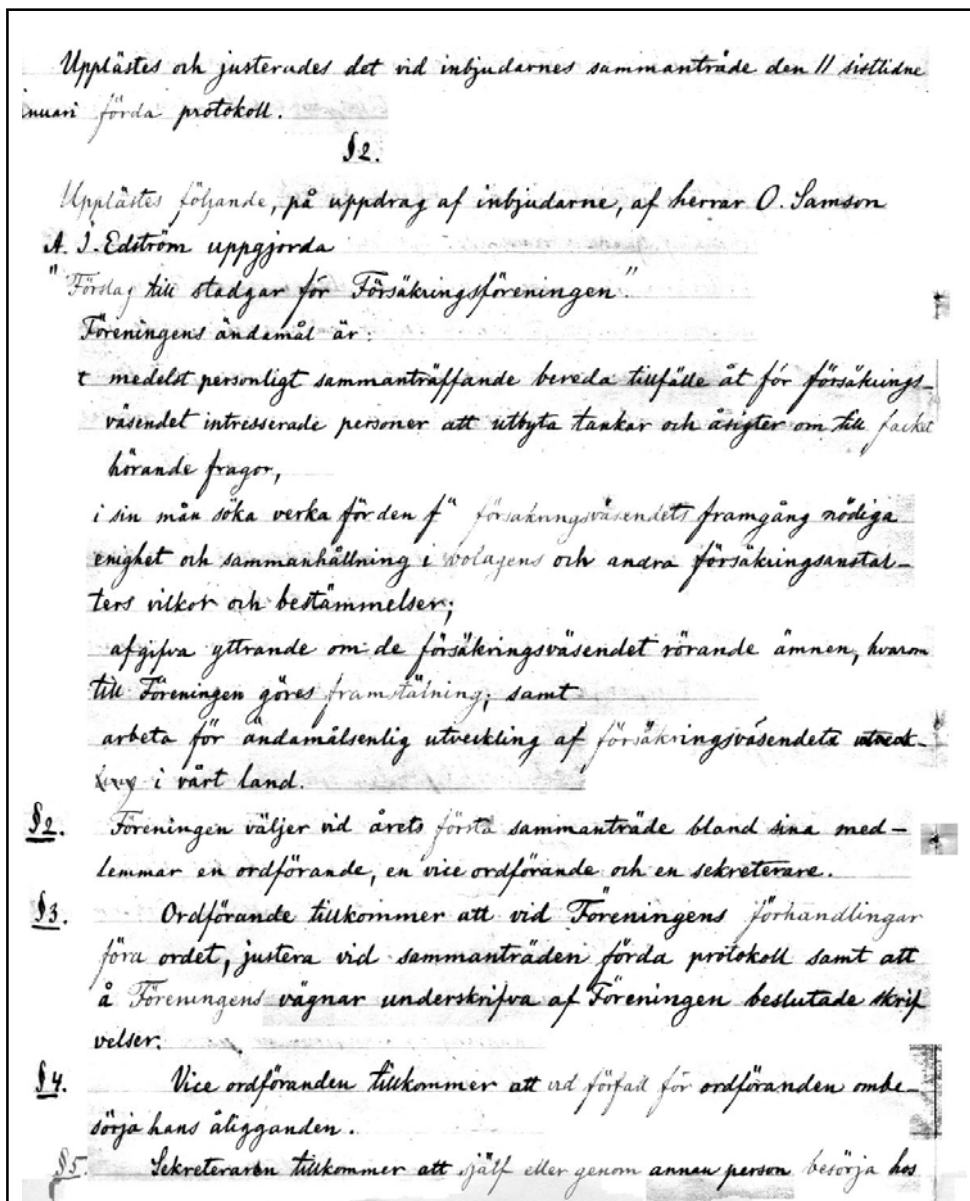 Upplästes och justerades det vid inbjudarnes sammanträde den 11 sistlidne
inuari förda protokoll.
§2.
Upplästes följande, på uppdrag af inbjudarne, af herrar O. Samson
A. I. Edström uppgjorda
"Förslag till stadgar för Försäkringsföreningen".
Föreningens ändamål är:
t medelst personligt sammanträffande bereda tillfälle åt för försäkrings-
väsendet intresserade personer att utbyta tankar och åsigter om till facket
hörande frågor,
i sin mån söka verka för den f" försäkringsväsendets framgång nödiga
enighet och sammanhållning i bolagens och andra försäkringsanstal-
ters vilkor och bestämmelser;
afgifva yttrande om de försäkringsväsendet rörande ämnen, hvarom
till Föreningen göres framstälning; samt
arbeta för ändamålsenlig utveckling af försäkringsväsendet
i vårt land.
§2. Föreningen väljer vid årets första sammanträde bland sina med-
lemmar en ordförande, en vice ordförande och en sekreterare.
§3. Ordförande tillkommer att vid Föreningens förhandlingar
föra ordet, justera vid sammanträden förda protokoll samt att
å Föreningens vägnar underskrifva af Föreningen beslutade skrif
velser.
§4. Vice ordföranden tillkommer att vid förfall för ordföranden ombe-
sörja hans åligganden.
§5. Sekreteraren tillkommer att sjelf eller genom annan person besörja hos